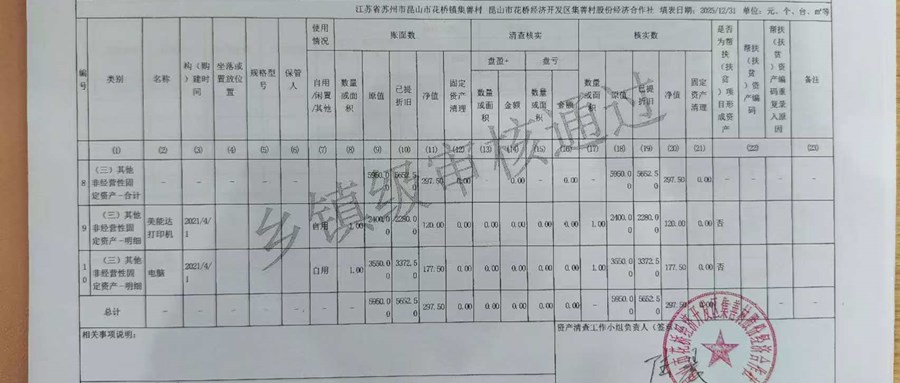 江苏省苏州市昆山市花桥镇集善村 昆山市花桥经济开发区集善村股份经济合作社 填表日期：2025/12/31 单位：元、个、台、㎡等
编号 类别 名称 构（购）建时间 坐落或置放位置 规格型号 保管人 使用情况 账面数 清查核实 核实数 是否为帮扶（扶贫）项目形成资产 帮扶（扶贫）资产编码 帮扶（扶贫）资产编码重复录入原因 备注
自用/闲置/其他 数量或面积 原值 已提折旧 净值 固定资产清理 盘盈+ 盘亏- 数量或面积 原值 已提折旧 净值 固定资产清理
数量或面积 金额 数量或面积 金额
(1) (2) (3) (4) (5) (6) (7) (8) (9) (10) (11) (12) (13) (14) (15) (16) (17) (18) (19) (20) (21) (22) (23)
8 （三）其他非经营性固定资产-合计 5950.00 5652.50 297.50 0.00 0.00 0.00 5950.00 5652.50 297.50 0.00
9 （三）其他非经营性固定资产-明细 美能达打印机 2021/4/1 自用 1.00 2400.00 2280.00 120.00 0.00 0.00 0.00 0.00 0.00 1.00 2400.00 2280.00 120.00 0.00 否
10 （三）其他非经营性固定资产-明细 电脑 2021/4/1 自用 1.00 3550.00 3372.50 177.50 0.00 0.00 0.00 0.00 0.00 1.00 3550.00 3372.50 177.50 0.00 否
总计 5950.00 5652.50 297.50 0.00 0.00 0.00 0.00 0.00 5950.00 5652.50 297.50 0.00
乡镇级审核通过
相关事项说明：
资产清查工作小组负责人（签
花桥经济开发区集善村股份经济合作社